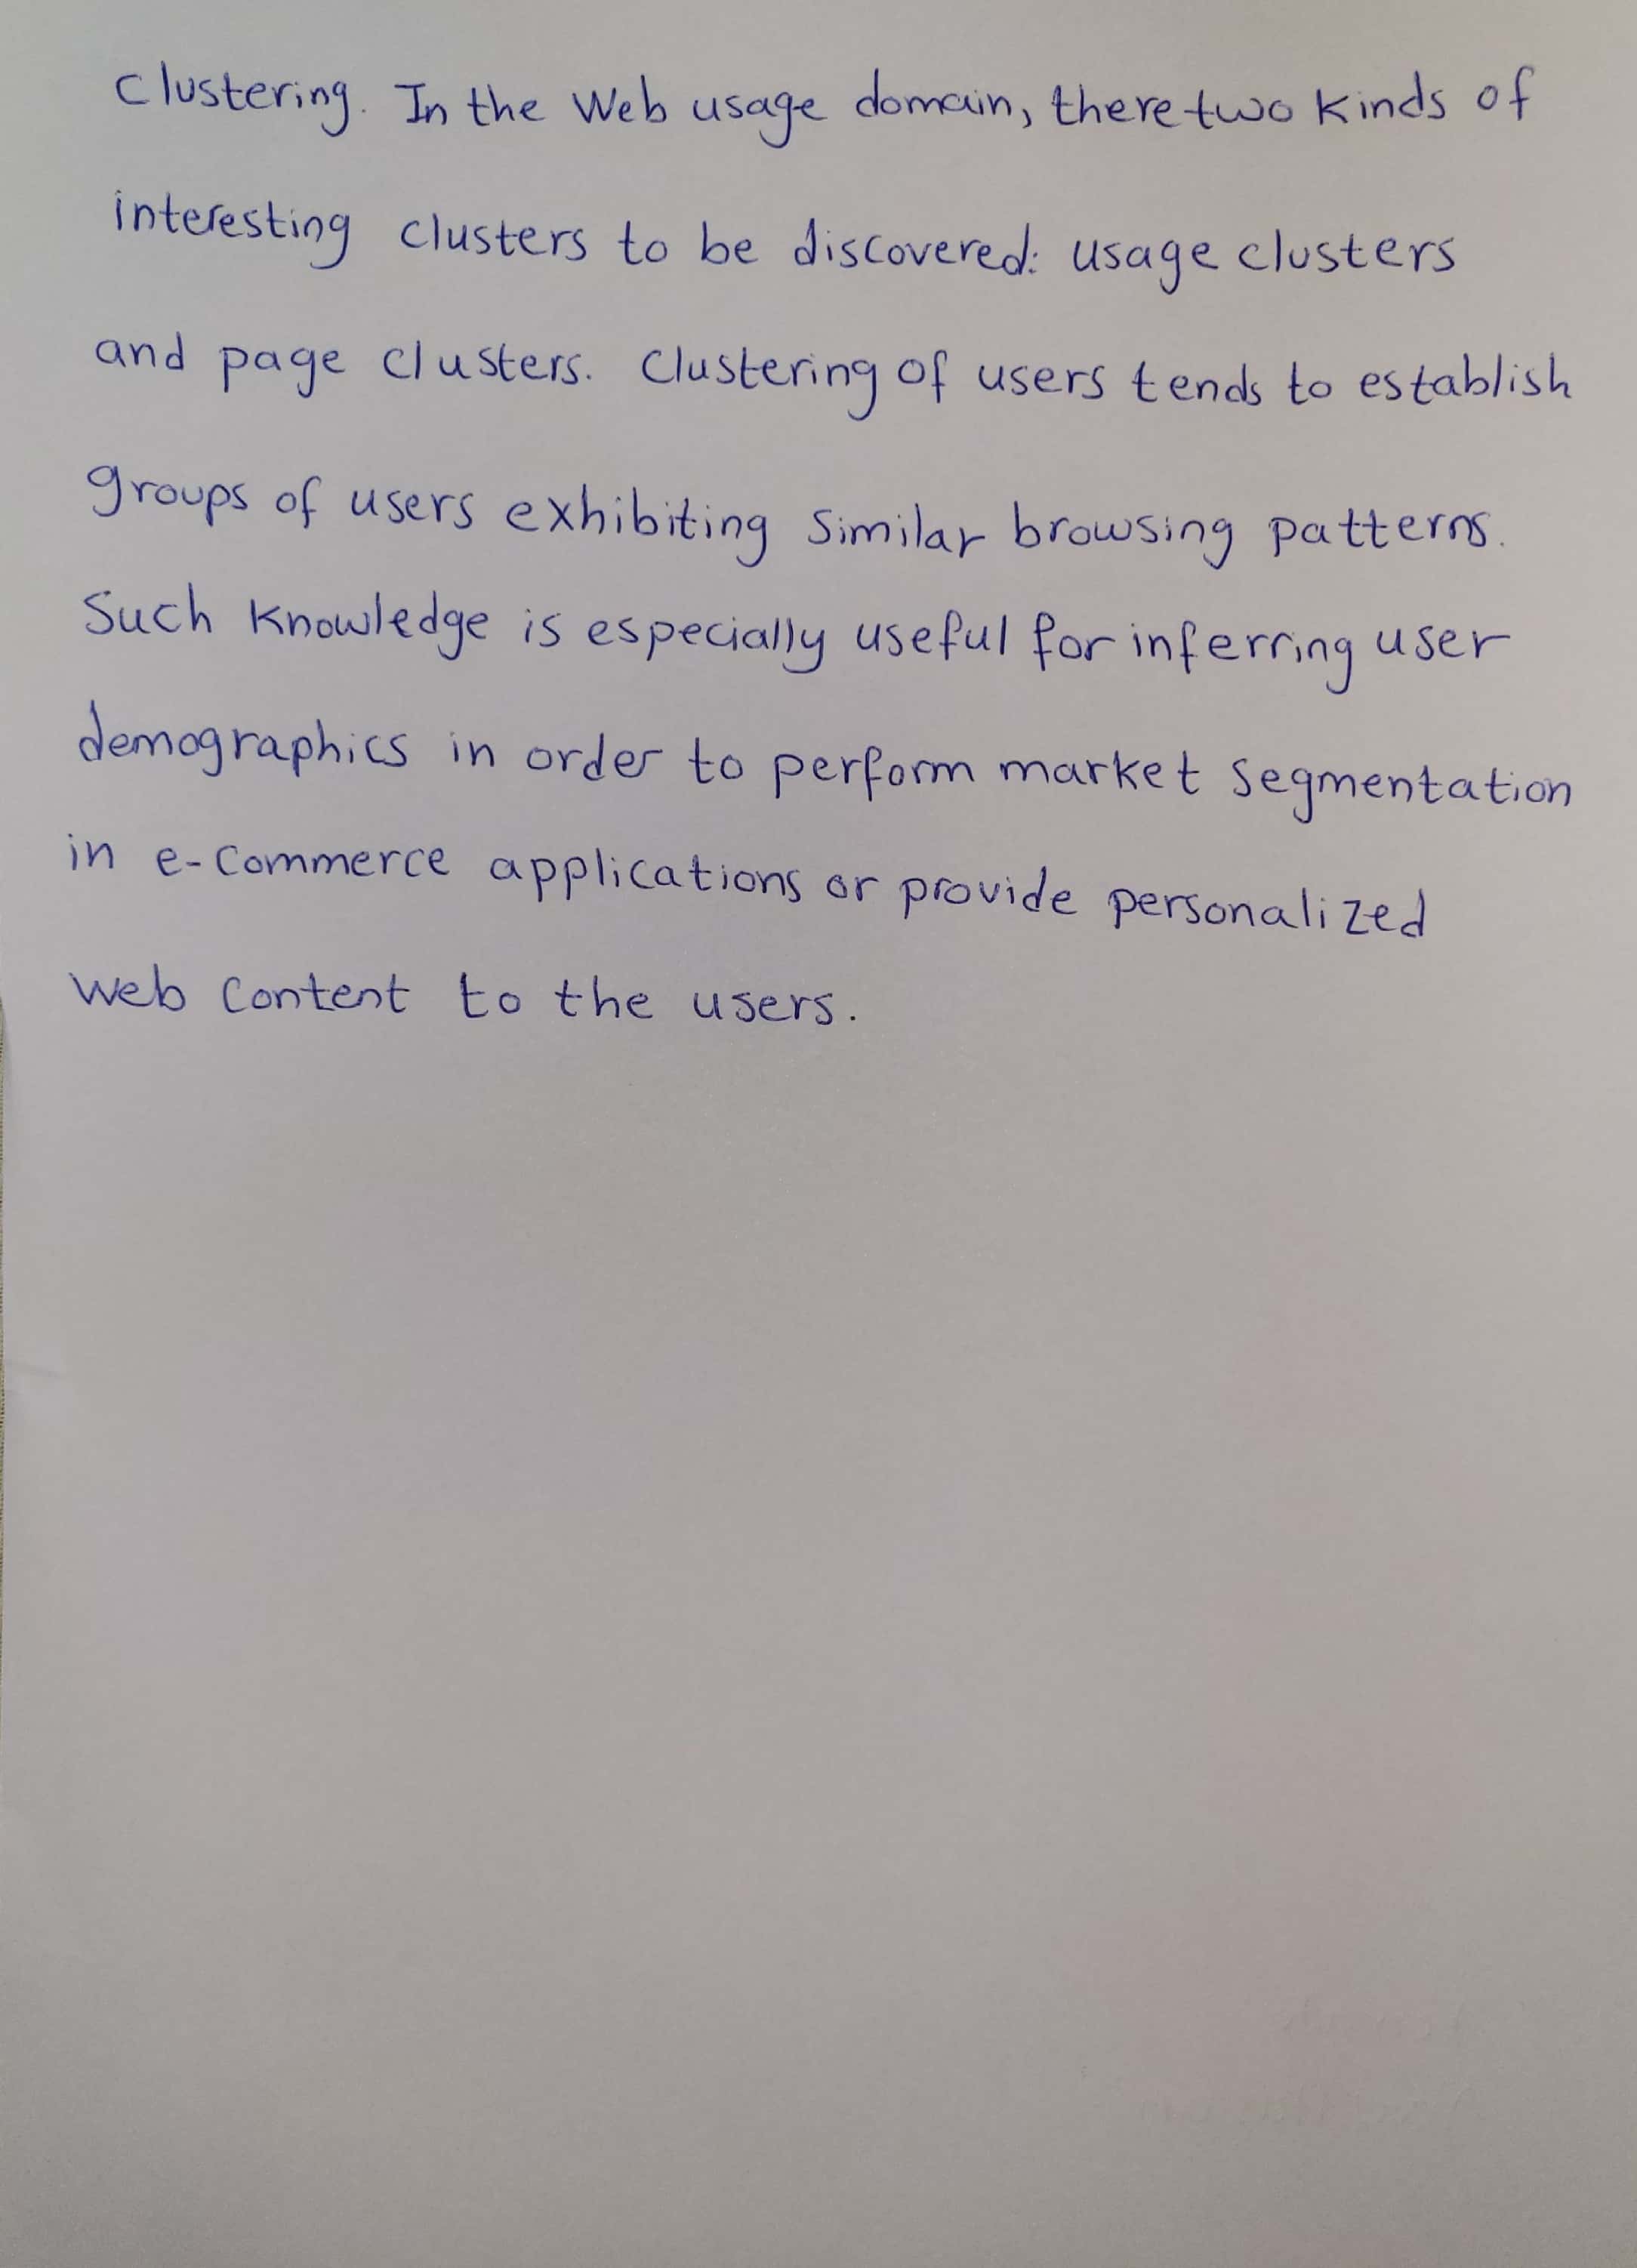 Clustering. In the Web usage domain, there two kinds of
interesting clusters to be discovered: usage clusters
and page clusters. Clustering of users tends to establish
groups of users exhibiting similar browsing patterns.
Such knowledge is especially useful for inferring user
demographics in order to perform market segmentation
in e-commerce applications or provide personalized
web content to the users.